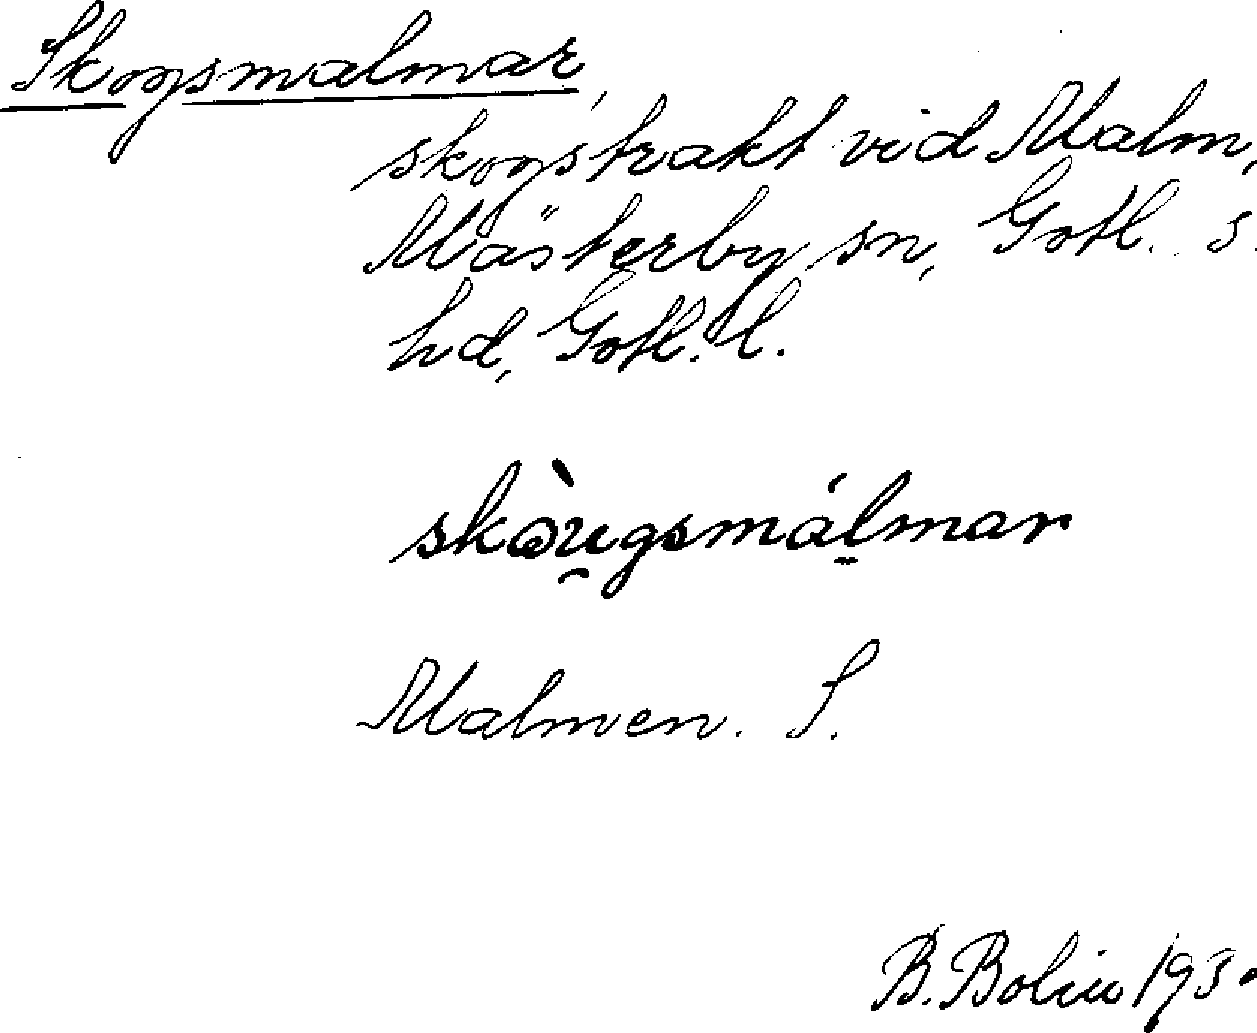 Skogsmalmar,
skogstrakt vid Malm,
Mästerby sn, Gotl. s.
hd, Gotl. l.
skòu̯gsmálmar
Malmen. S.
B. Bolin 193